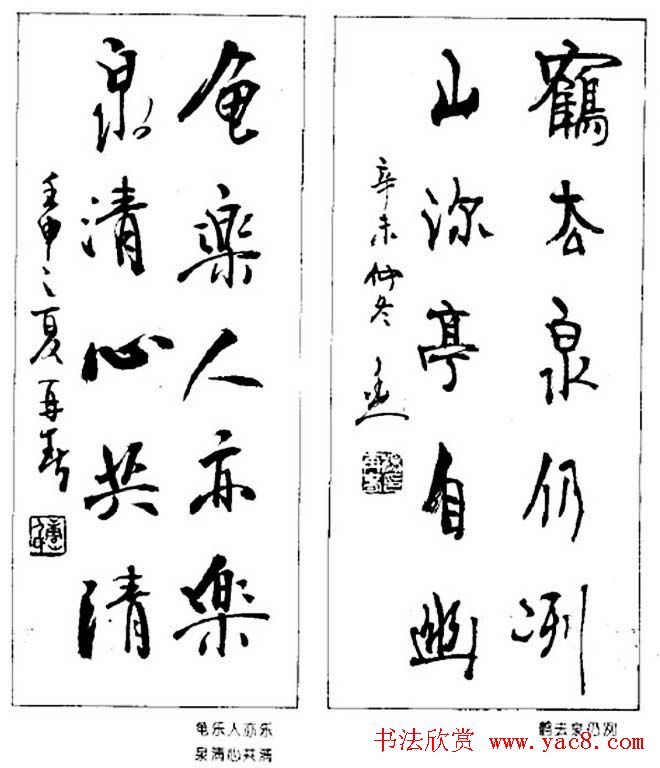 鶴去泉仍冽
山深亭自幽
辛未仲冬
龟楽人亦楽
泉清心共清
壬申之夏再春
龟乐人亦乐
泉清心共清
鹤去泉仍冽
书法欣赏 www.yac8.com